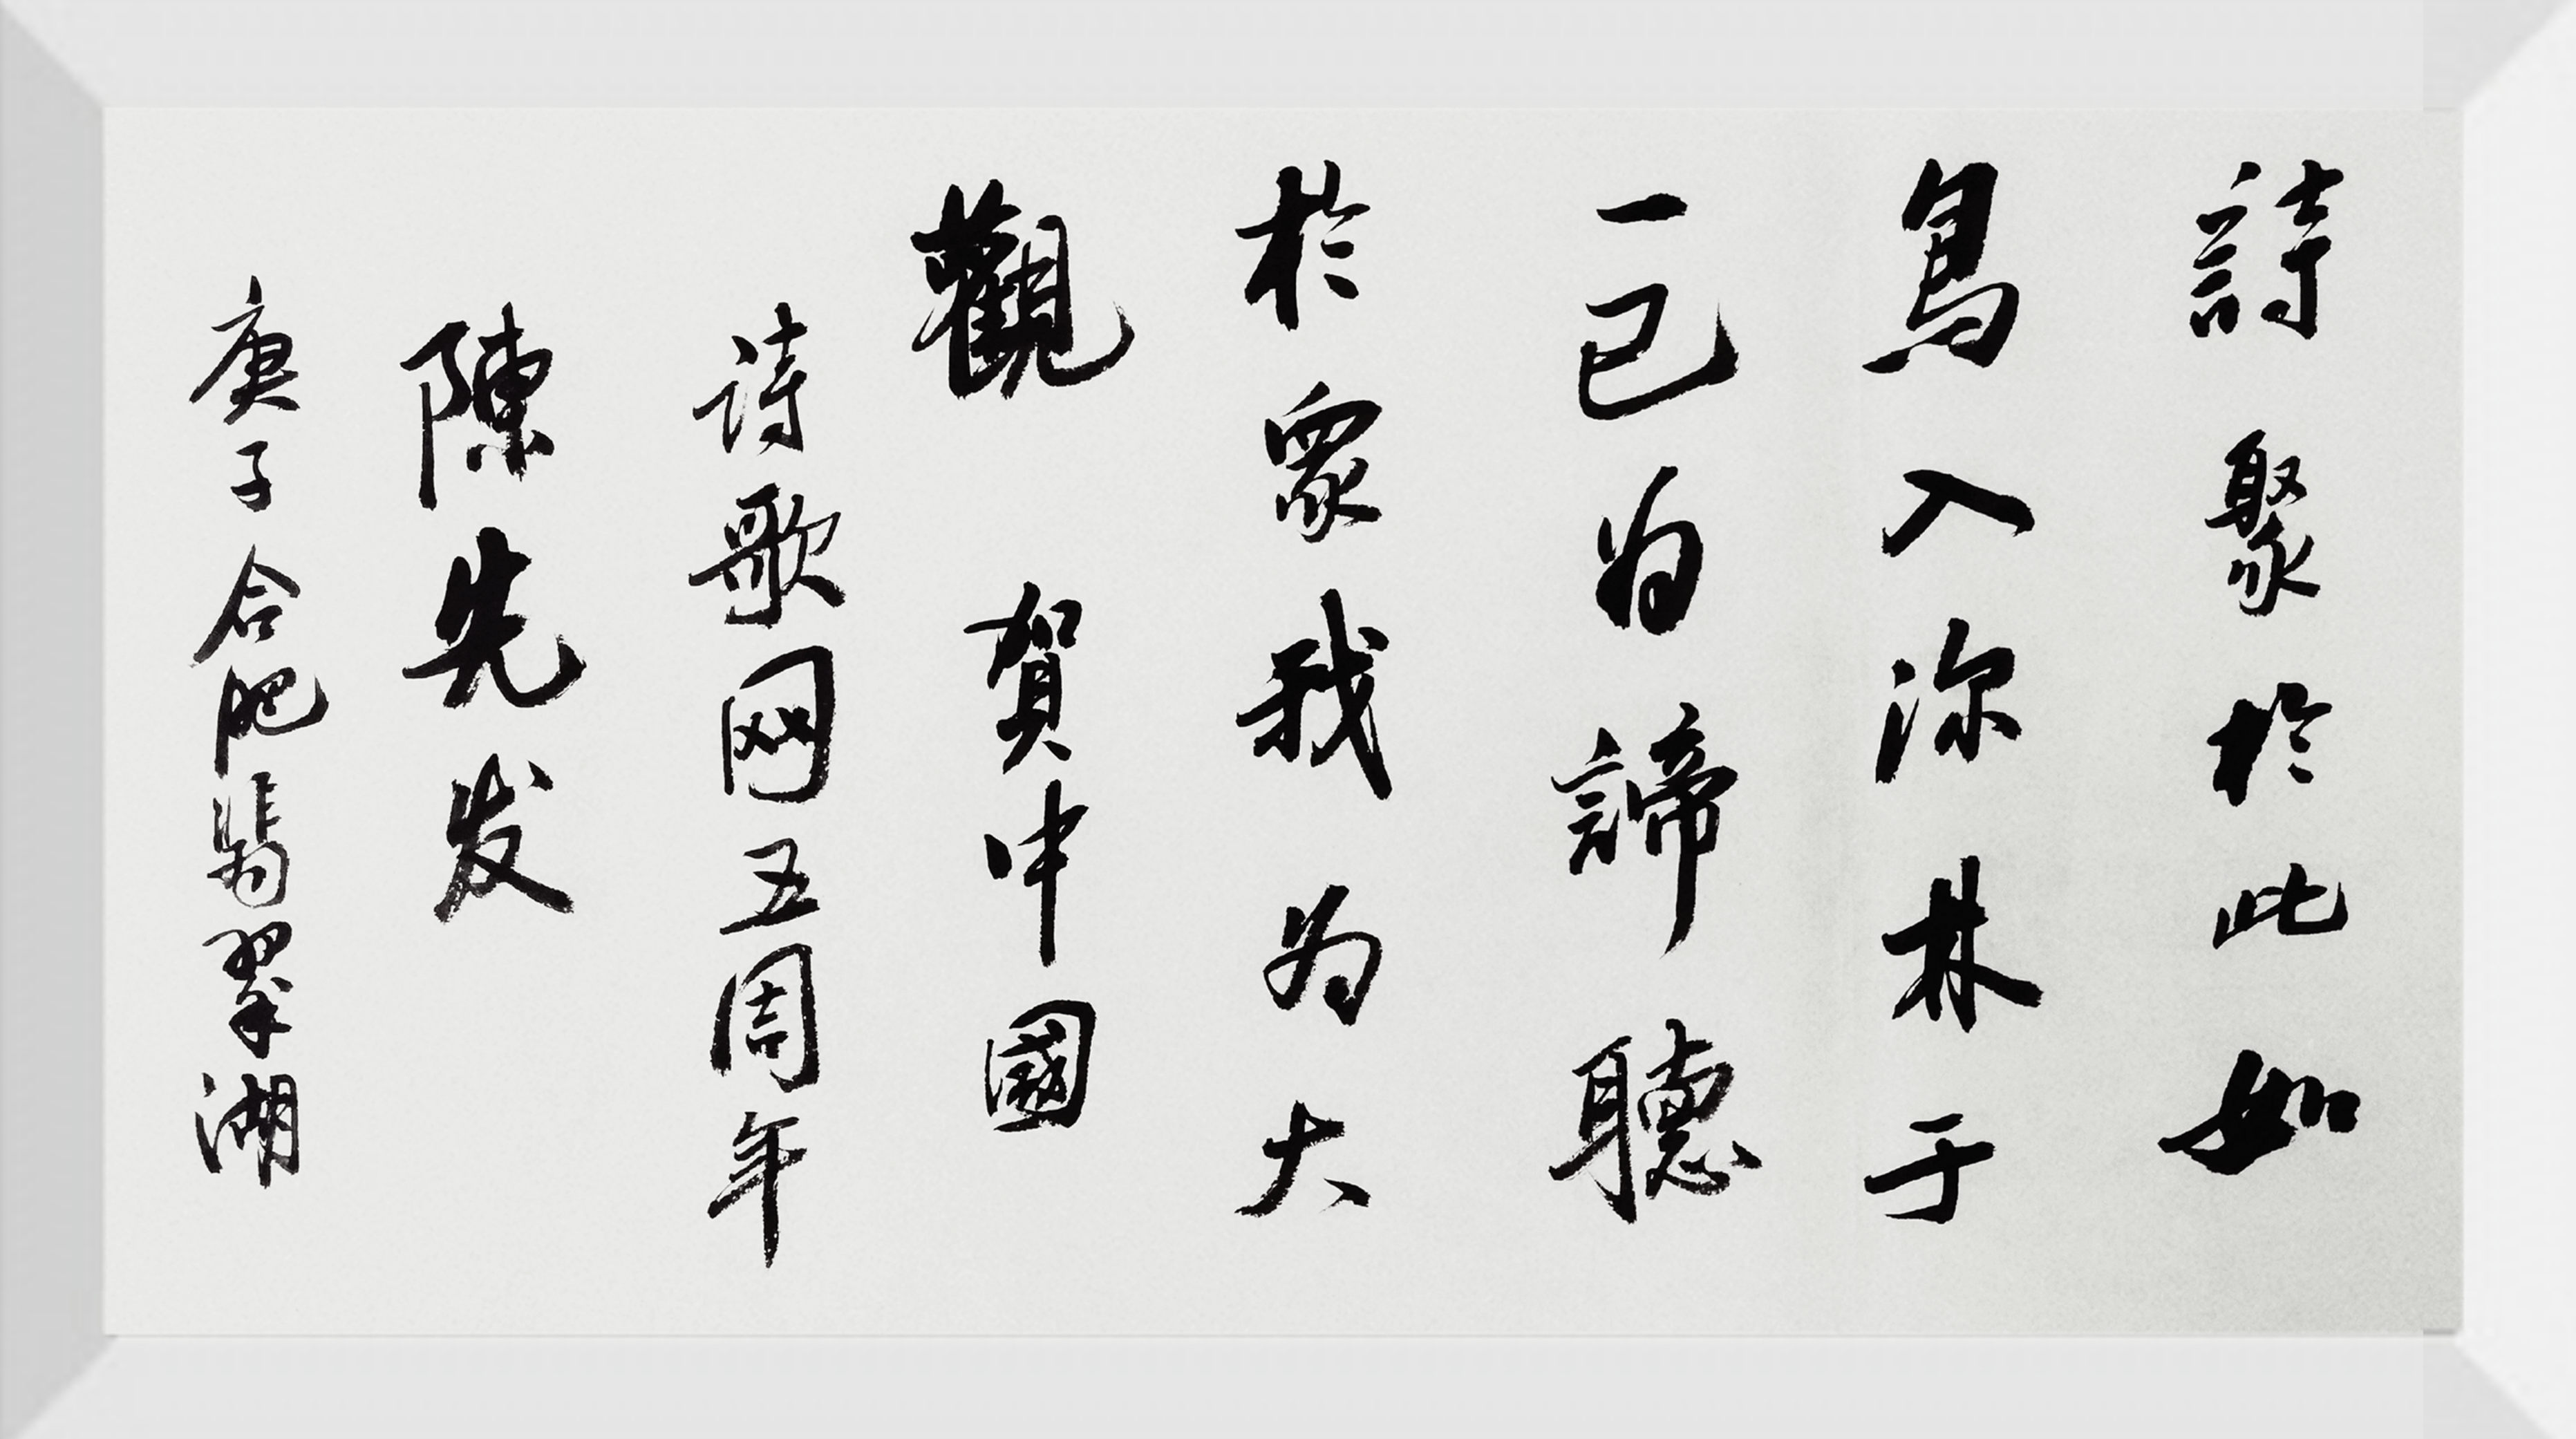 詩聚於此如
鳥入深林于
一己为諦聽
於眾我为大
觀 賀中國
诗歌网五周年
陳先发
庚子合肥翡翠湖